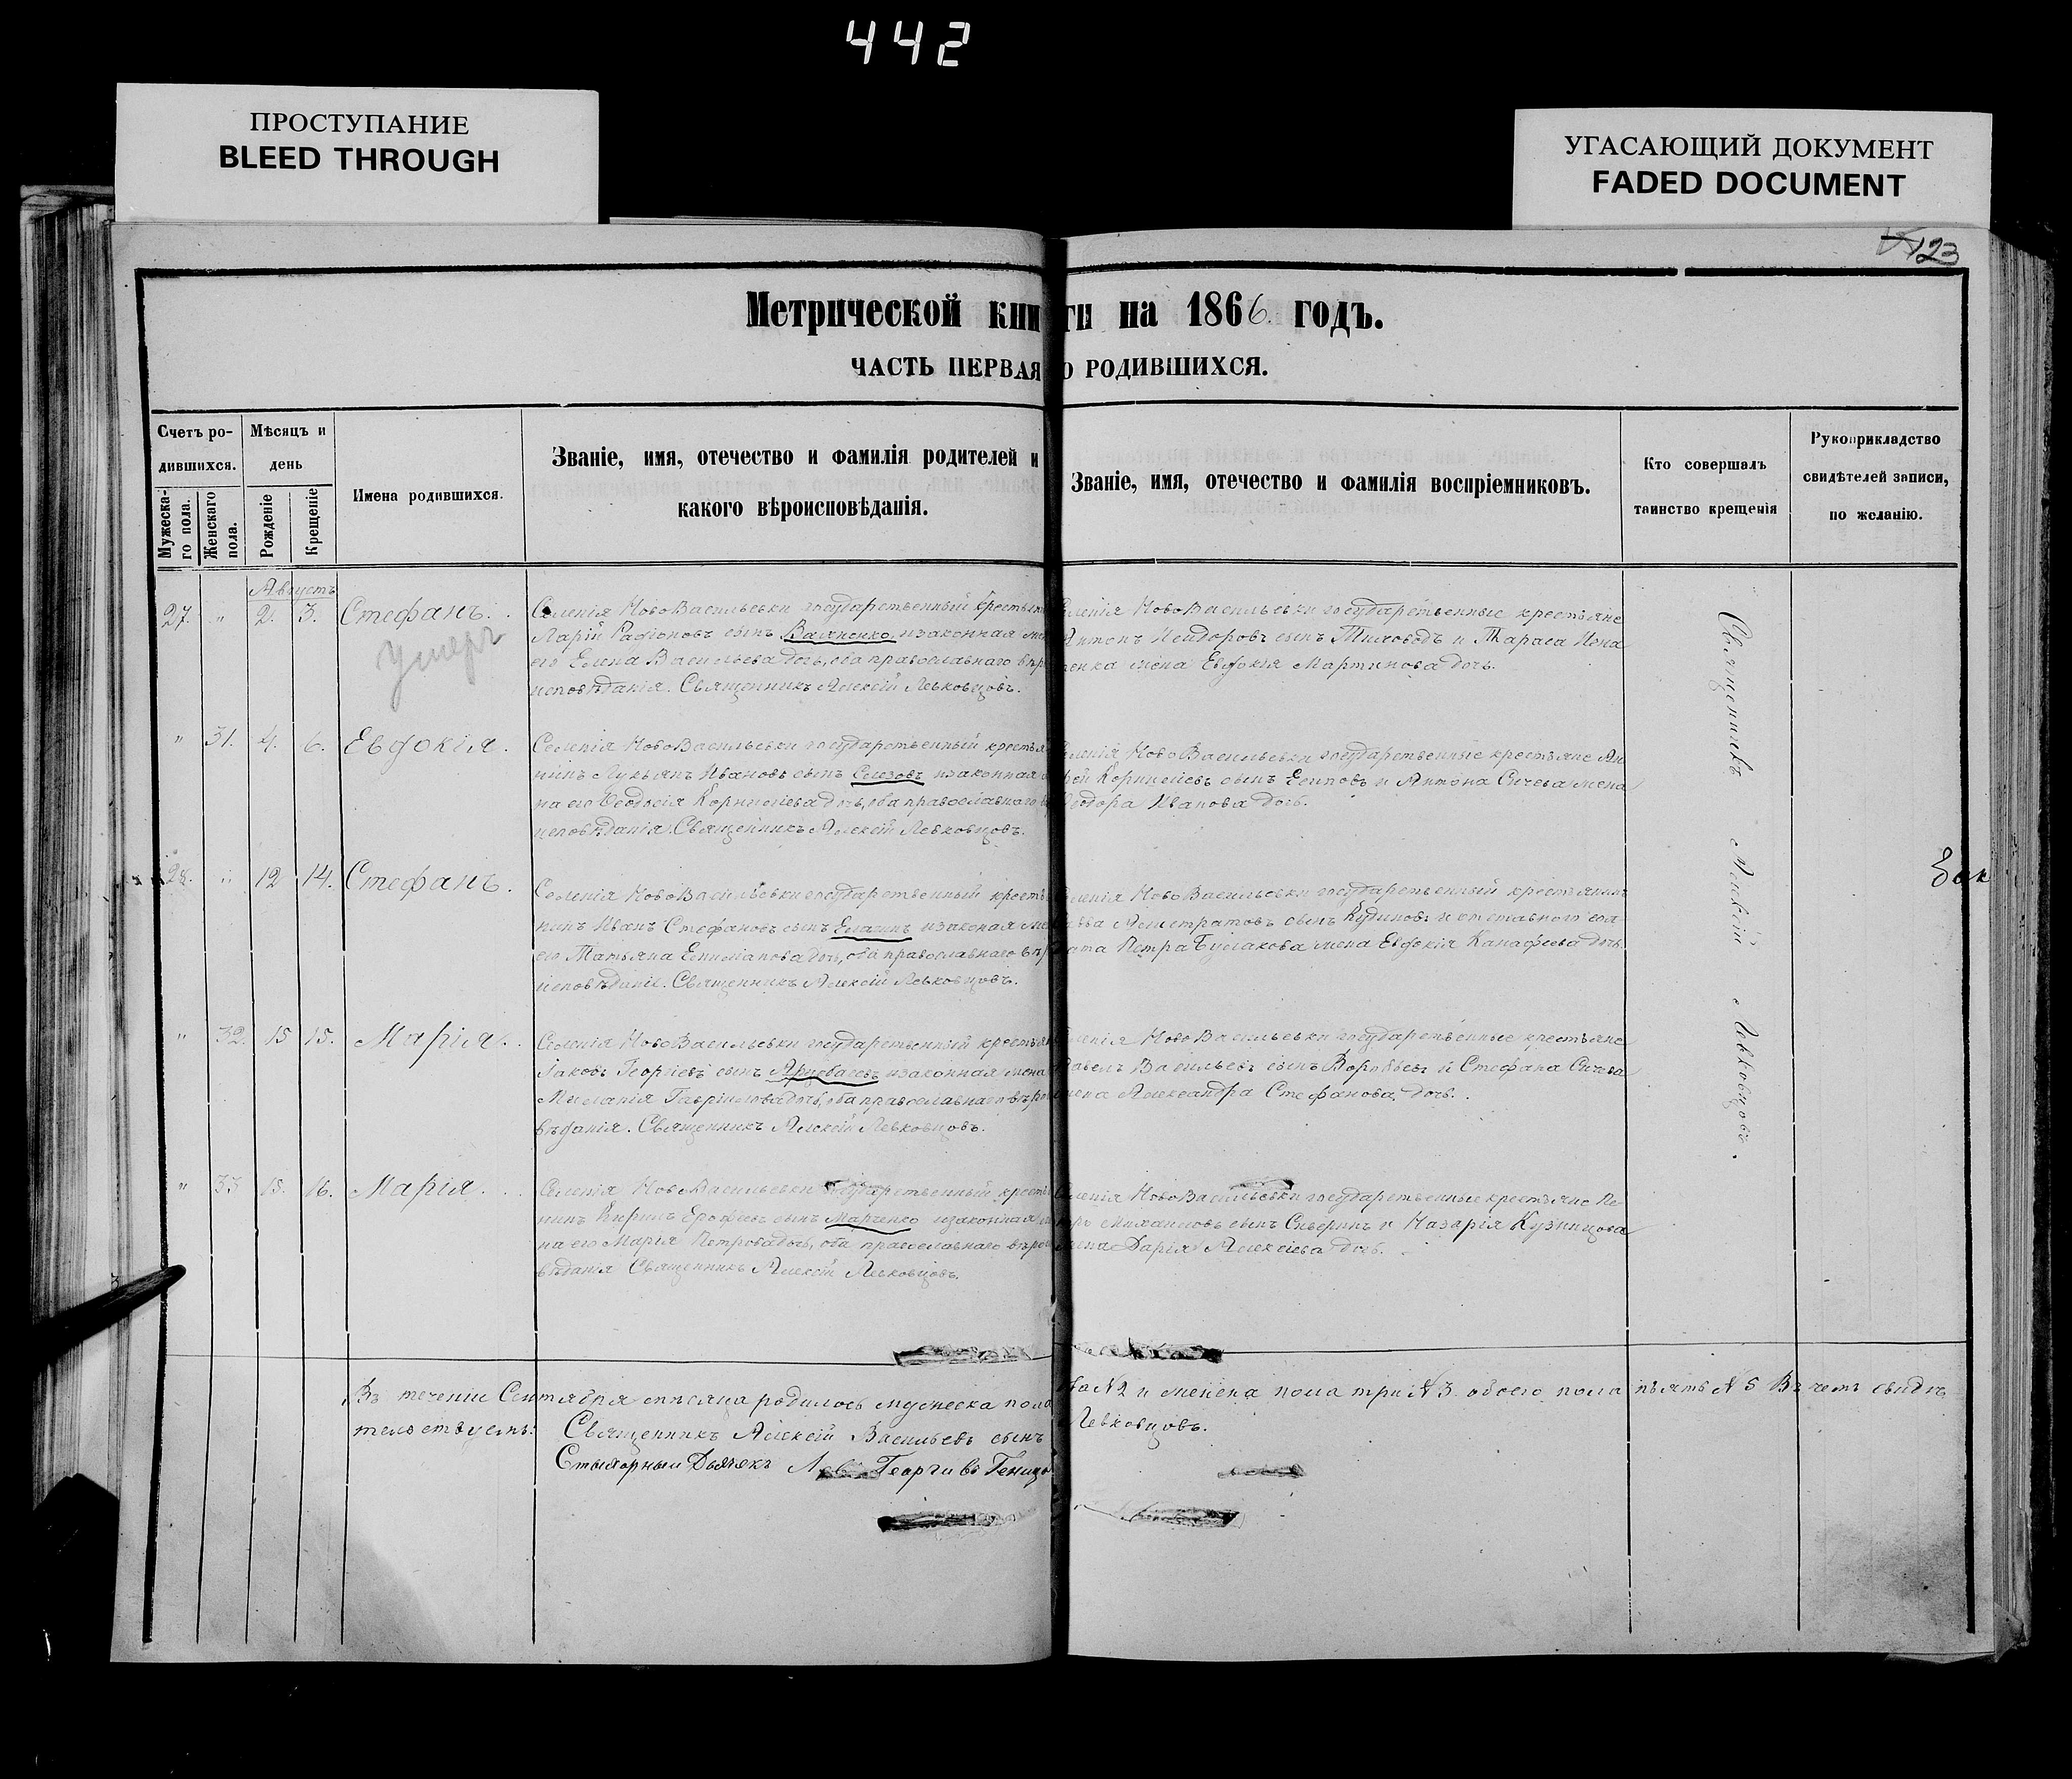 442
ПРОСТУПАНИЕ
BLEED THROUGH
УГАСАЮЩИЙ ДОКУМЕНТ
FADED DOCUMENT
123
Метрической книги на 1866. годъ.
ЧАСТЬ ПЕРВАЯ О РОДИВШИХСЯ.
Счетъ ро-
дившихся.
Мужеска-
го пола.
Женскаго
пола.
Мѣсяцъ и
день
Рожденіе
Крещеніе
Имена родившихся.
Званіе, имя, отечество и фамилія родителей и
какого вѣроисповѣданія.
Званіе, имя, отечество и фамилія воспріемниковъ.
Кто совершалъ
таинство крещенія
Рукоприкладство
свидѣтелей записи,
по желанію.
Августъ
27. " 2. 3. Стефанъ.
Умеръ
Селенія НовоВасильевки государственный крестьян
Ларій Радіоновъ сынъ изаконная
его Елена Васильева дочь, оба православнаго вѣро
исповѣданія. Священникъ Алексѣй Левковцовъ.
селенія НовоВасильевки государственные крестьяне
Антонъ Исидоровъ сынъ и Тараса
жена Евдокія Мартинова дочь.
" 31. 4. 6. Евдокія.
Селенія НовоВасильевки государственный крестья
нинъ Лукьянъ Ивановъ сынъ Селезовъ изаконная
на его Ѳеодосія Корнилієва дочь, оба православнаго
исповѣданія. Священникъ Алексѣй Левковцовъ.
селенія НовоВасильевки государственные крестьяне Ан
Корниліевъ сынъ Есиповъ и Антона Сичева жена
Ѳеодора Иванова дочь.
28. " 12 14. Стефанъ.
Селенія НовоВасильевки государственный кресть
нинъ Иванъ Стефановъ сынъ Елагинъ изаконая
его Татьяна дочь, оба православнаго вѣр
исповѣданіе. Священникъ Алексѣй Левковцовъ.
селенія НовоВасильевки государственный крестьянинъ
сынъ Кудиновъ и отставнаго сол
дата Петра Буслакова жена Евдокія дочь.
" 32. 15 15. Марія.
Селенія НовоВасильевки государственный крестьян
Іаковъ Георгіевъ сынъ изаконная жена
Миланія Гавріилова дочь, оба православнаго вѣро
вѣданія. Священникъ Алексѣй Левковцовъ.
селенія НовоВасильевки государственные крестьяне
Павелъ Васильевъ сынъ Воробьевъ и Стефана Сичева
жена Александра Стефанова дочь.
" 33 15. 16. Марія.
Селенія НовоВасильевки государственный кресть
нинъ Кирилъ Ерофеевъ сынъ Марченко изаконная
на его Марія Петрова дочь, оба православнаго вѣро
вѣданія Священникъ Алексѣй Левковцовъ.
селенія НовоВасильевки государственные крестьяне Пе
тръ Михаиловъ сынъ и Назарія Кузницова
жена Дарія Алексіева дочь.
Священникъ Алексѣй Левковцовъ.
Въ теченіи Сентября мѣсяца родилось мужеска пола два №2 и женска пола три №3. обоего пола пять №5 Въ чемъ свидѣ
тельствуемъ: Священникъ Алексѣй Васильевъ сынъ Левковцовъ.
Стыхарный Дьячекъ Георгиевъ